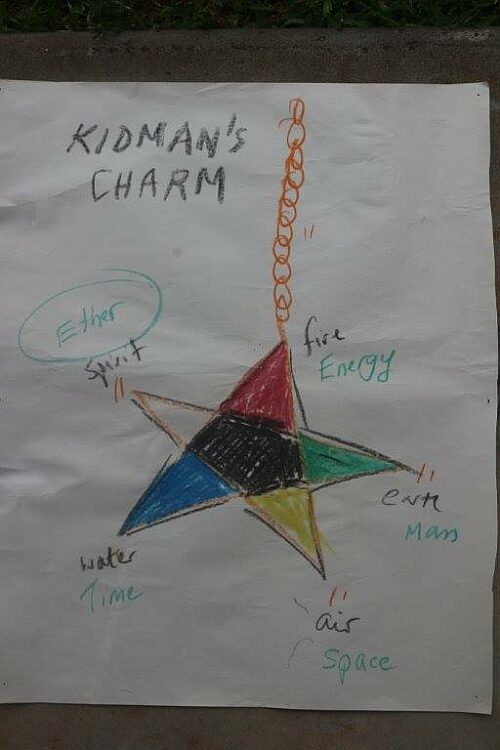 KIDMAN'S
CHARM
Ether
Spirit
fire
Energy
earth
Mass
water
Time
air
Space